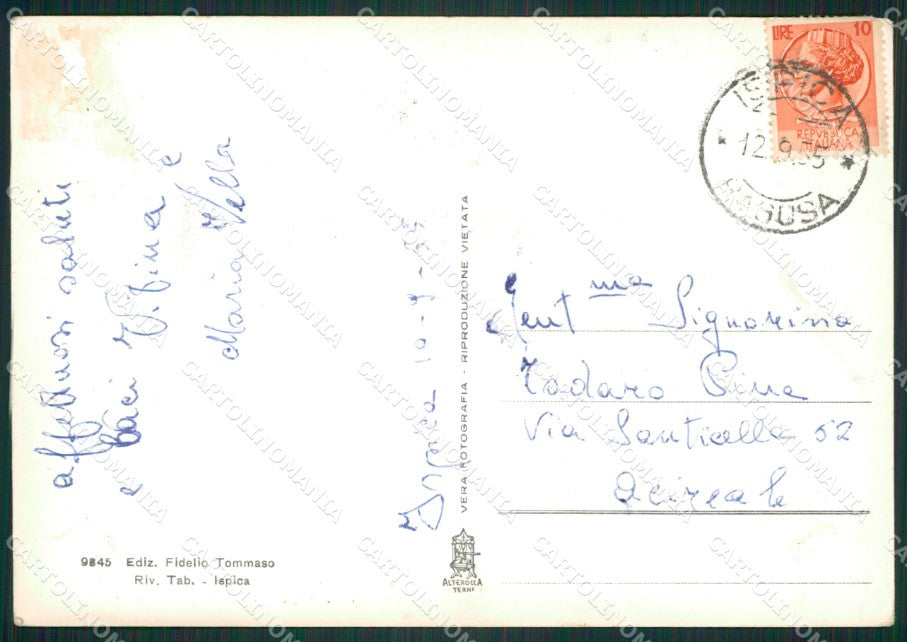 affettuosi saluti
e baci V. Pina e
Maria Vella
Ispica 10-9-55
VERA FOTOGRAFIA - RIPRODUZIONE VIETATA
LIRE 10
REPVBBLICA
ITALIANA
ISPICA
12.9.55
RAGUSA
Gent.ma Signorina
Todaro Pina
Via Santicella 52
Acireale
9845 Ediz. Fidelio Tommaso
Riv. Tab. - Ispica
ALTEROCCA
TERNI
CARTOLINOMANIA